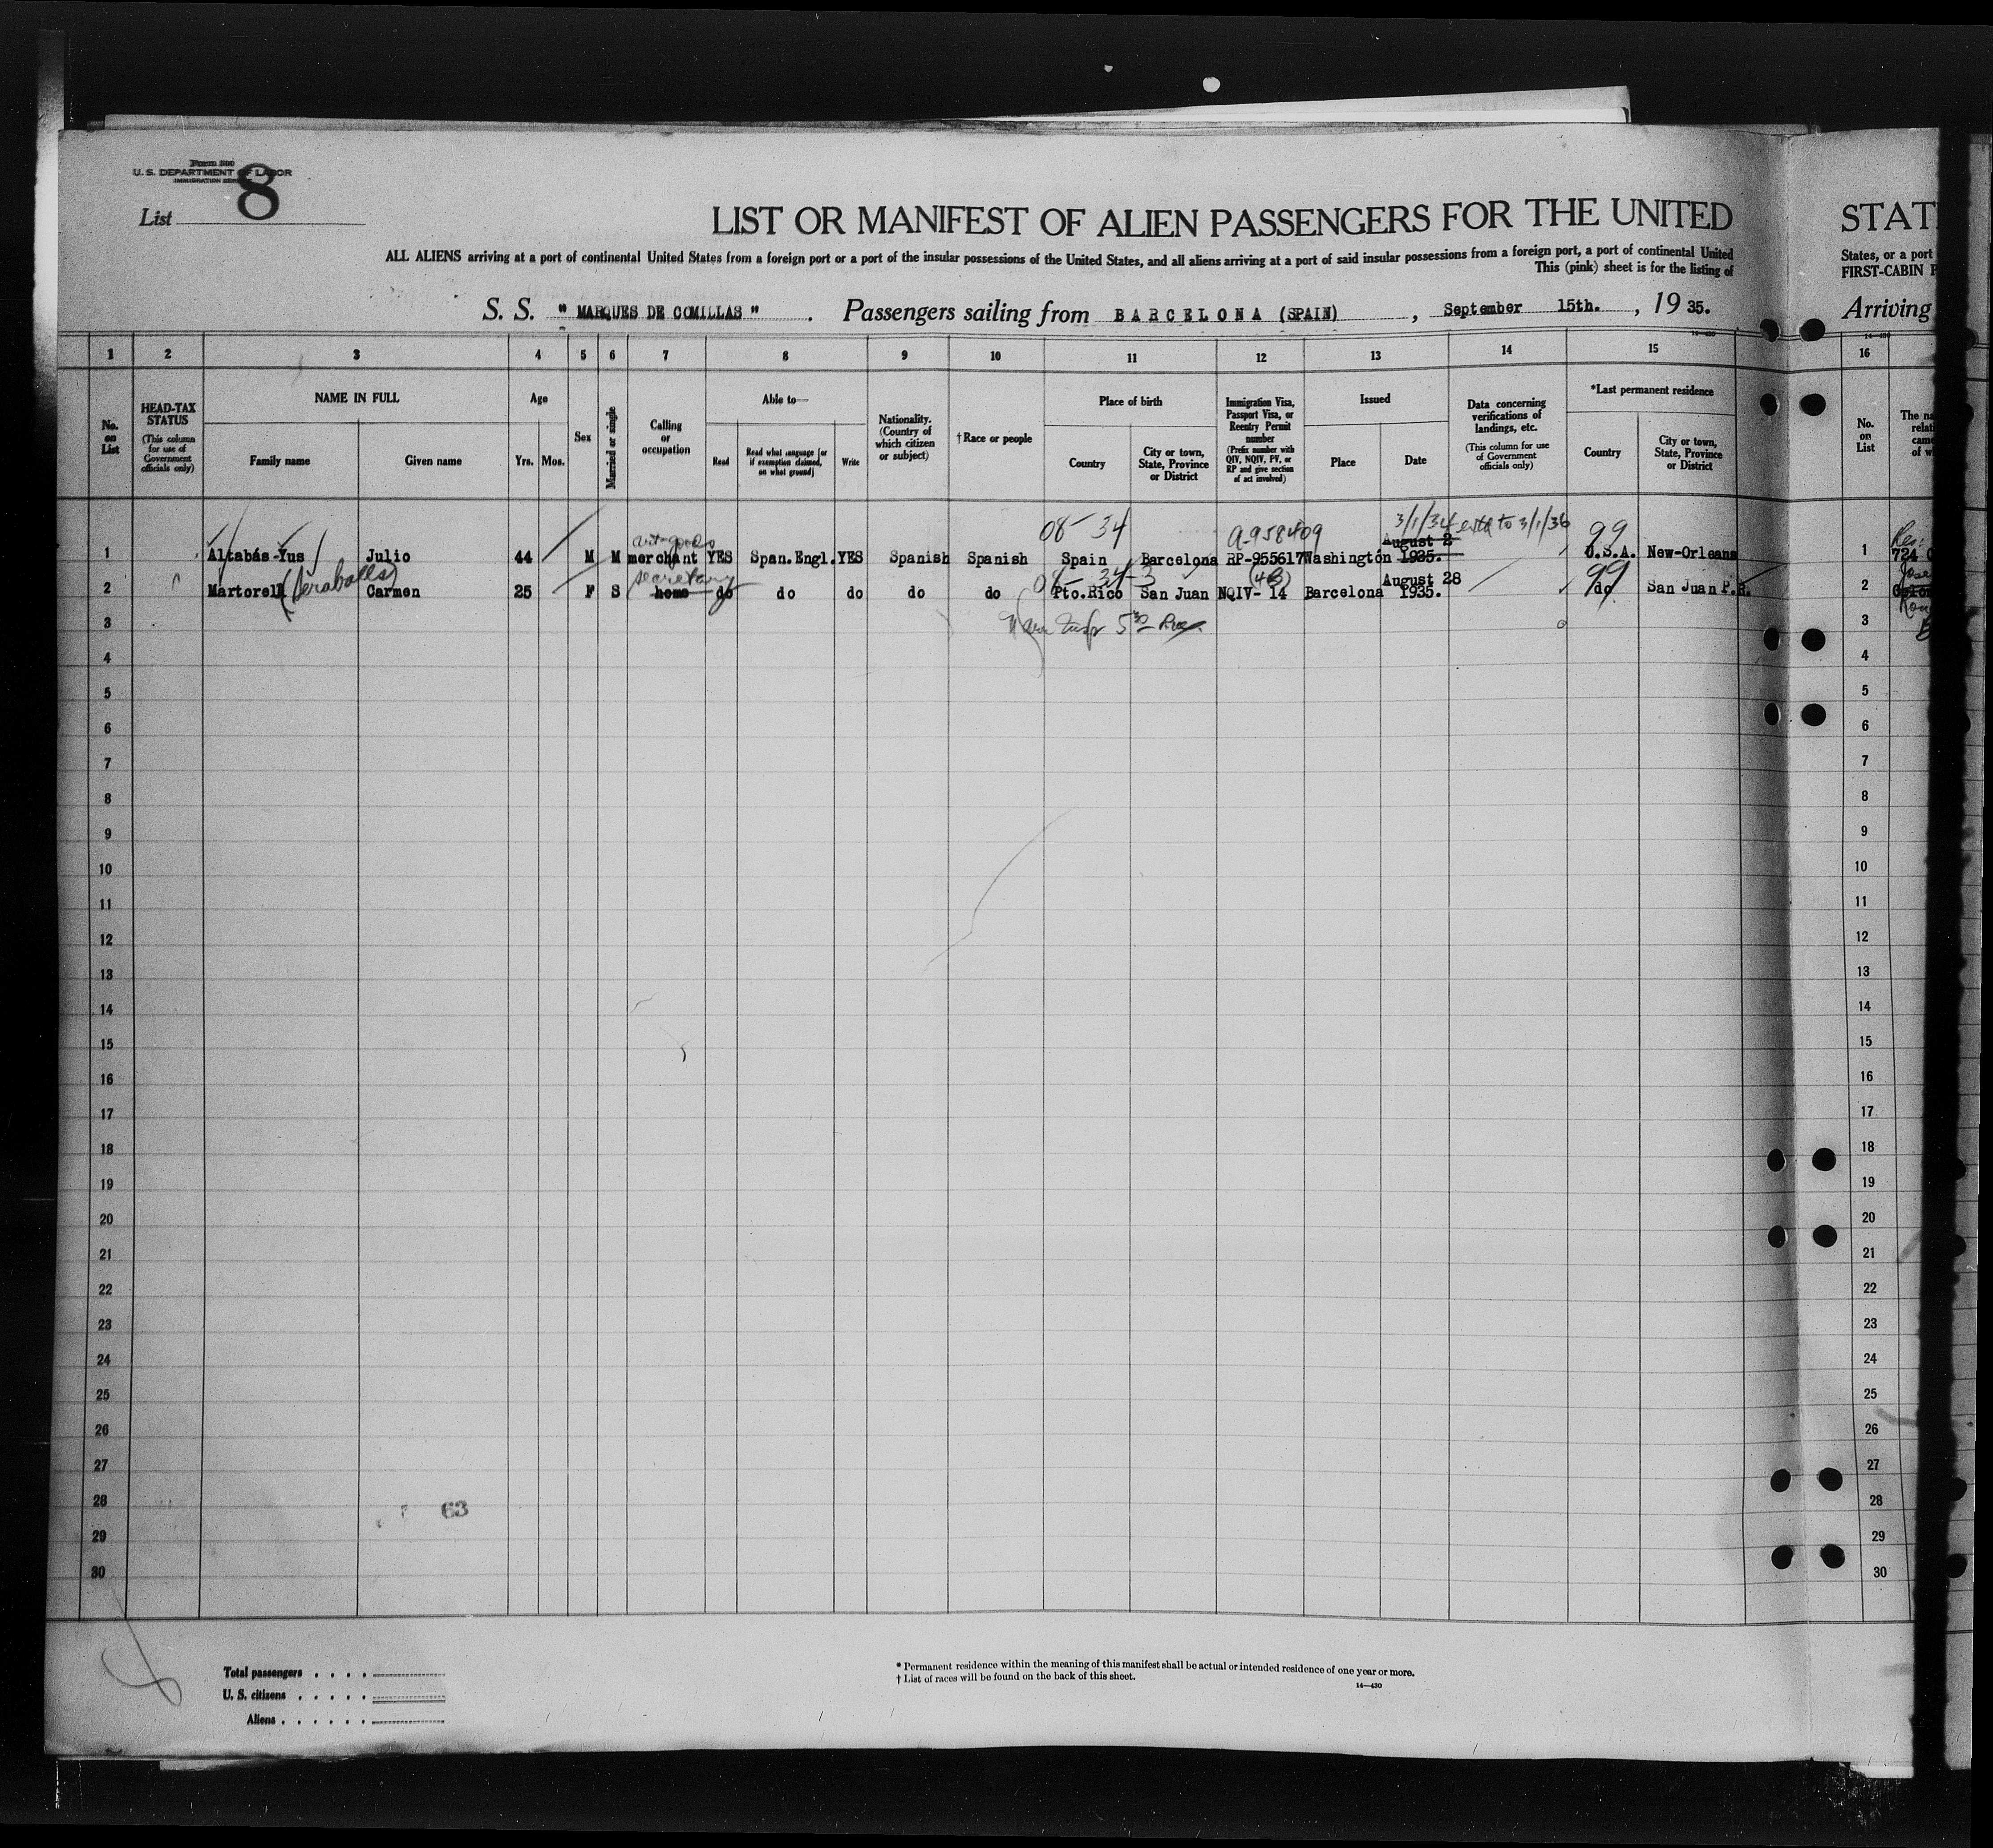 Form 500
U. S. DEPARTMENT OF LABOR
IMMIGRATION SERVICE
List 8
LIST OR MANIFEST OF ALIEN PASSENGERS FOR THE UNITED
STAT
ALL ALIENS arriving at a port of continental United States from a foreign port or a port of the insular possessions of the United States, and all aliens arriving at a port of said insular possessions from a foreign port, a port of continental United
States, or a port
This (pink) sheet is for the listing of
FIRST-CABIN P
S. S. " MARQUES DE COMILLAS ". Passengers sailing from BARCELONA (SPAIN), September 15th., 1935.
Arriving
14—430
14—430
1 2 3 4 5 6 7 8 9 10 11 12 13 14 15 16
No. on List
HEAD-TAX STATUS
(This column for use of Government officials only)
NAME IN FULL
Family name
Given name
Age
Yrs. Mos.
Sex
Married or single
Calling or occupation
Able to—
Read
Read what language [or if exemption claimed, on what ground]
Write
Nationality. (Country of which citizen or subject)
†Race or people
Place of birth
Country
City or town, State, Province or District
Immigration Visa, Passport Visa, or Reentry Permit number
(Prefix number with QIV, NQIV, PV, or RP and give section of act involved)
Issued
Place
Date
Data concerning verifications of landings, etc.
(This column for use of Government officials only)
*Last permanent residence
Country
City or town, State, Province or District
No. on List
The na
relati
came
of w
art goods 08-34 A-958409 3/1/34 extd to 3/1/36 99
August 2
1 Altabás-Yus Julio 44 M M merchant YES Span.Engl. YES Spanish Spanish Spain Barcelona RP-955617 Washington 1935. U.S.A. New-Orleans 1 724
secretary 34-3 (4B) August 28 99
2 Martorell Carmen 25 F S home do do do do do Pto.Rico San Juan NQIV- 14 Barcelona 1935. do San Juan P.R. 2
3 3
4 4
5 5
6 6
7 7
8 8
9 9
10 10
11 11
12 12
13 13
14 14
15 15
16 16
17 17
18 18
19 19
20 20
21 21
22 22
23 23
24 24
25 25
26 26
27 27
28 63 28
29 29
30 30
Total passengers . . . .
U. S. citizens . . . . .
Aliens . . . . . .
* Permanent residence within the meaning of this manifest shall be actual or intended residence of one year or more.
† List of races will be found on the back of this sheet.
14—430